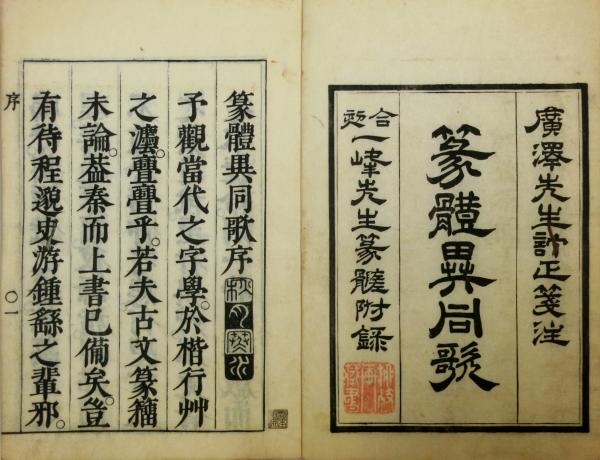 廣澤先生訂正箋注
篆體異同歌
一峰先生篆髓附錄
篆體異同歌序
予觀當代之字學。於楷行艸
之灋。亹亹乎。若夫古文篆籀
未論。葢秦而上書已備矣。豈
有待程邈史游鍾繇之輩邪。
序
〇一